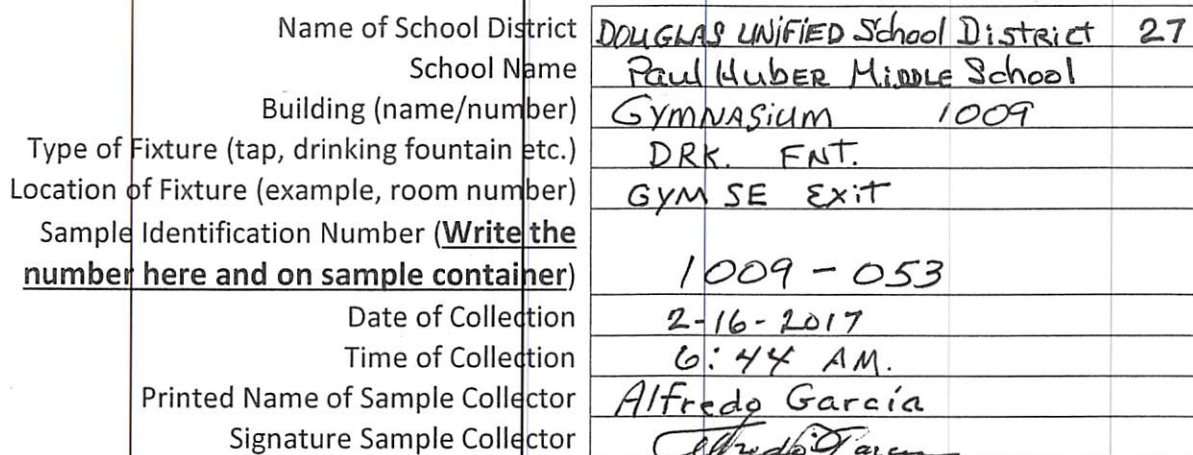 Name of School District DOUGLAS UNiFiED School District 27
School Name Paul HubER MiDDLE School
Building (name/number) GYMNASiUM 1009
Type of Fixture (tap, drinking fountain etc.) DRK. FNT.
Location of Fixture (example, room number) GYM SE Exit
Sample Identification Number (Write the
number here and on sample container) 1009-053
Date of Collection 2-16-2017
Time of Collection 6:44 AM.
Printed Name of Sample Collector Alfredo Garcia
Signature Sample Collector Alfredo Garcia